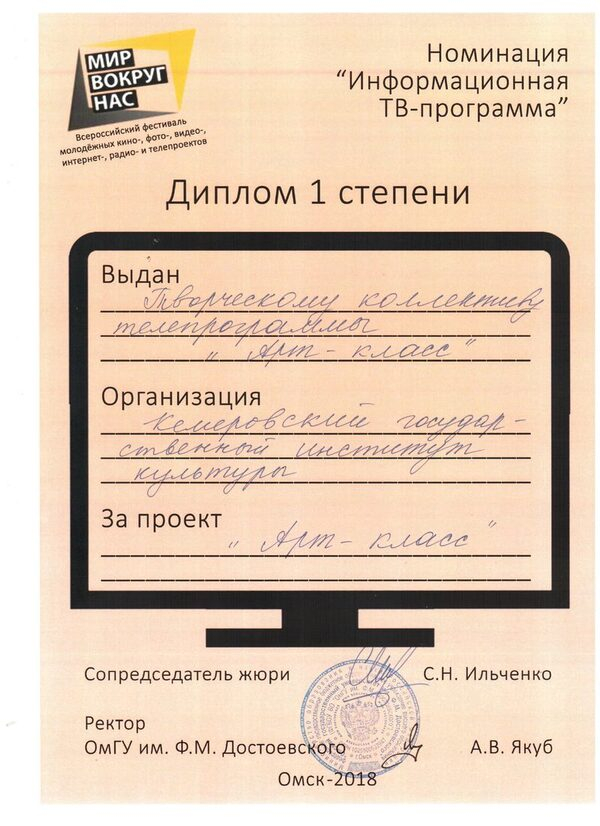 МИР
ВОКРУГ
НАС
Всероссийский фестиваль
молодёжных кино-, фото-, видео-,
интернет-, радио- и телепроектов
Номинация
“Информационная
ТВ-программа”
Диплом 1 степени
Выдан
Творческому коллективу
телепрограммы
„ Арт - класс “
Организация
Кемеровский государ-
ственный институт
культуры
За проект
„ Арт - класс “
Сопредседатель жюри С.Н. Ильченко
Ректор
ОмГУ им. Ф.М. Достоевского А.В. Якуб
Омск-2018